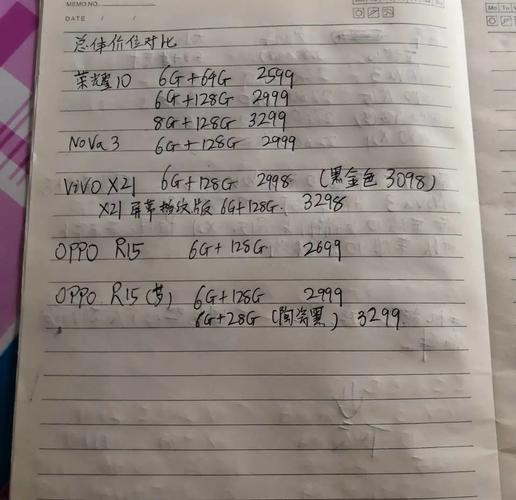 MEMO NO.
DATE / /
Mo Tu
总体价位对比
荣耀10 6G+64G 2599
6G+128G 2999
8G+128G 3299
Nova 3 6G+128G 2999
ViVO X21 6G+128G 2998 (黑金色 3098)
X21 屏幕指纹版 6G+128G. 3298
OPPO R15 6G+128G 2699
OPPO R15(梦) 6G+128G 2999
6G+28G (陶瓷黑) 3299